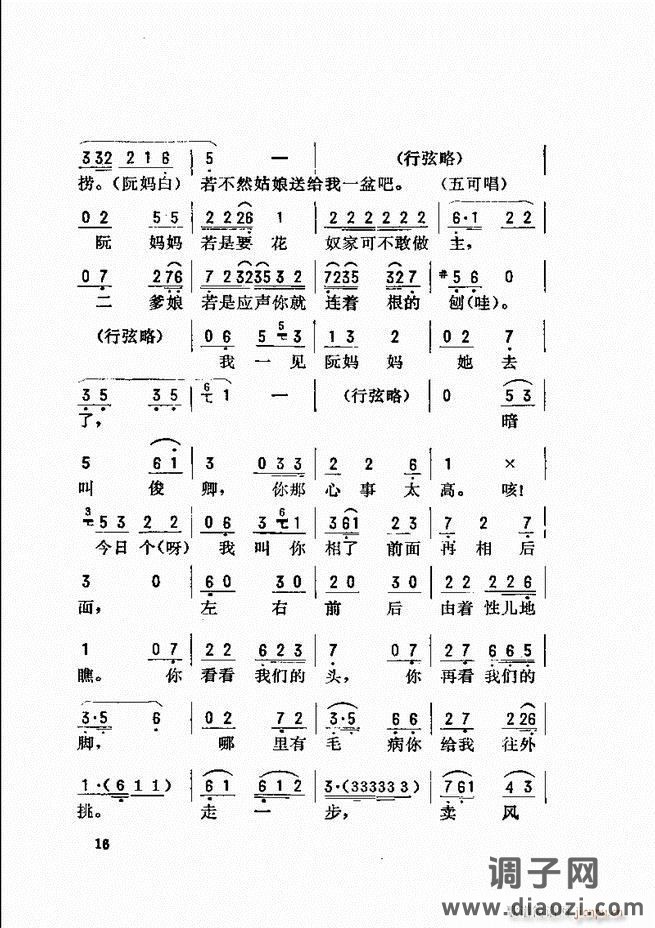 3 32 2 1 6 | 5 — | (行弦略) |
捞。(阮妈白) 若不然姑娘送给我一盆吧。 (五可唱)
0 2 5 5 | 2 2 26 1 | 2 2 2 2 2 2 | 6·1 2 2 |
阮 妈妈 若是要花 奴家可不敢做 主,
0 7 2 76 | 7 2 32 35 3 2 | 7235 327 | #5 6 0 |
二 爹娘 若是应声你就 连着 根的 刨(哇)。
(行弦略) | 0 6 5 3 | 1 3 2 2 | 0 2 7 |
我 一见 阮妈 妈 她去
3 5 3 5 | 1 — | (行弦略) | 0 5 3 |
了, 暗
5 6 i | 3 0 3 3 | 2 2 6 | 1 × |
叫 俊 卿, 你那 心事太 高。咳!
5 3 2 2 | 0 6 3 1 | 3 61 2 3 | 7 2 7 |
今日 个(呀) 我 叫你 相了 前面 再相后
3 0 | 6 0 3 0 | 2 0 2 0 | 2 2 2 2 6 |
面, 左 右 前 后 由着 性儿地
1 0 7 | 2 2 6 2 3 | 7 0 7 | 2 7 6 6 5 |
瞧。 你 看看 我们的 头, 你 再看 我们的
3·5 6 | 0 2 7 2 | 3·5 6 6 | 2 7 2 26 |
脚, 哪 里有 毛 病你 给我 往外
1·(6 1 1) | 6 1 6 1 2 | 3·(33333 3) | 7 61 4 3 |
挑。 走 一 步, 卖 风
16
调子网
www.diaozi.com